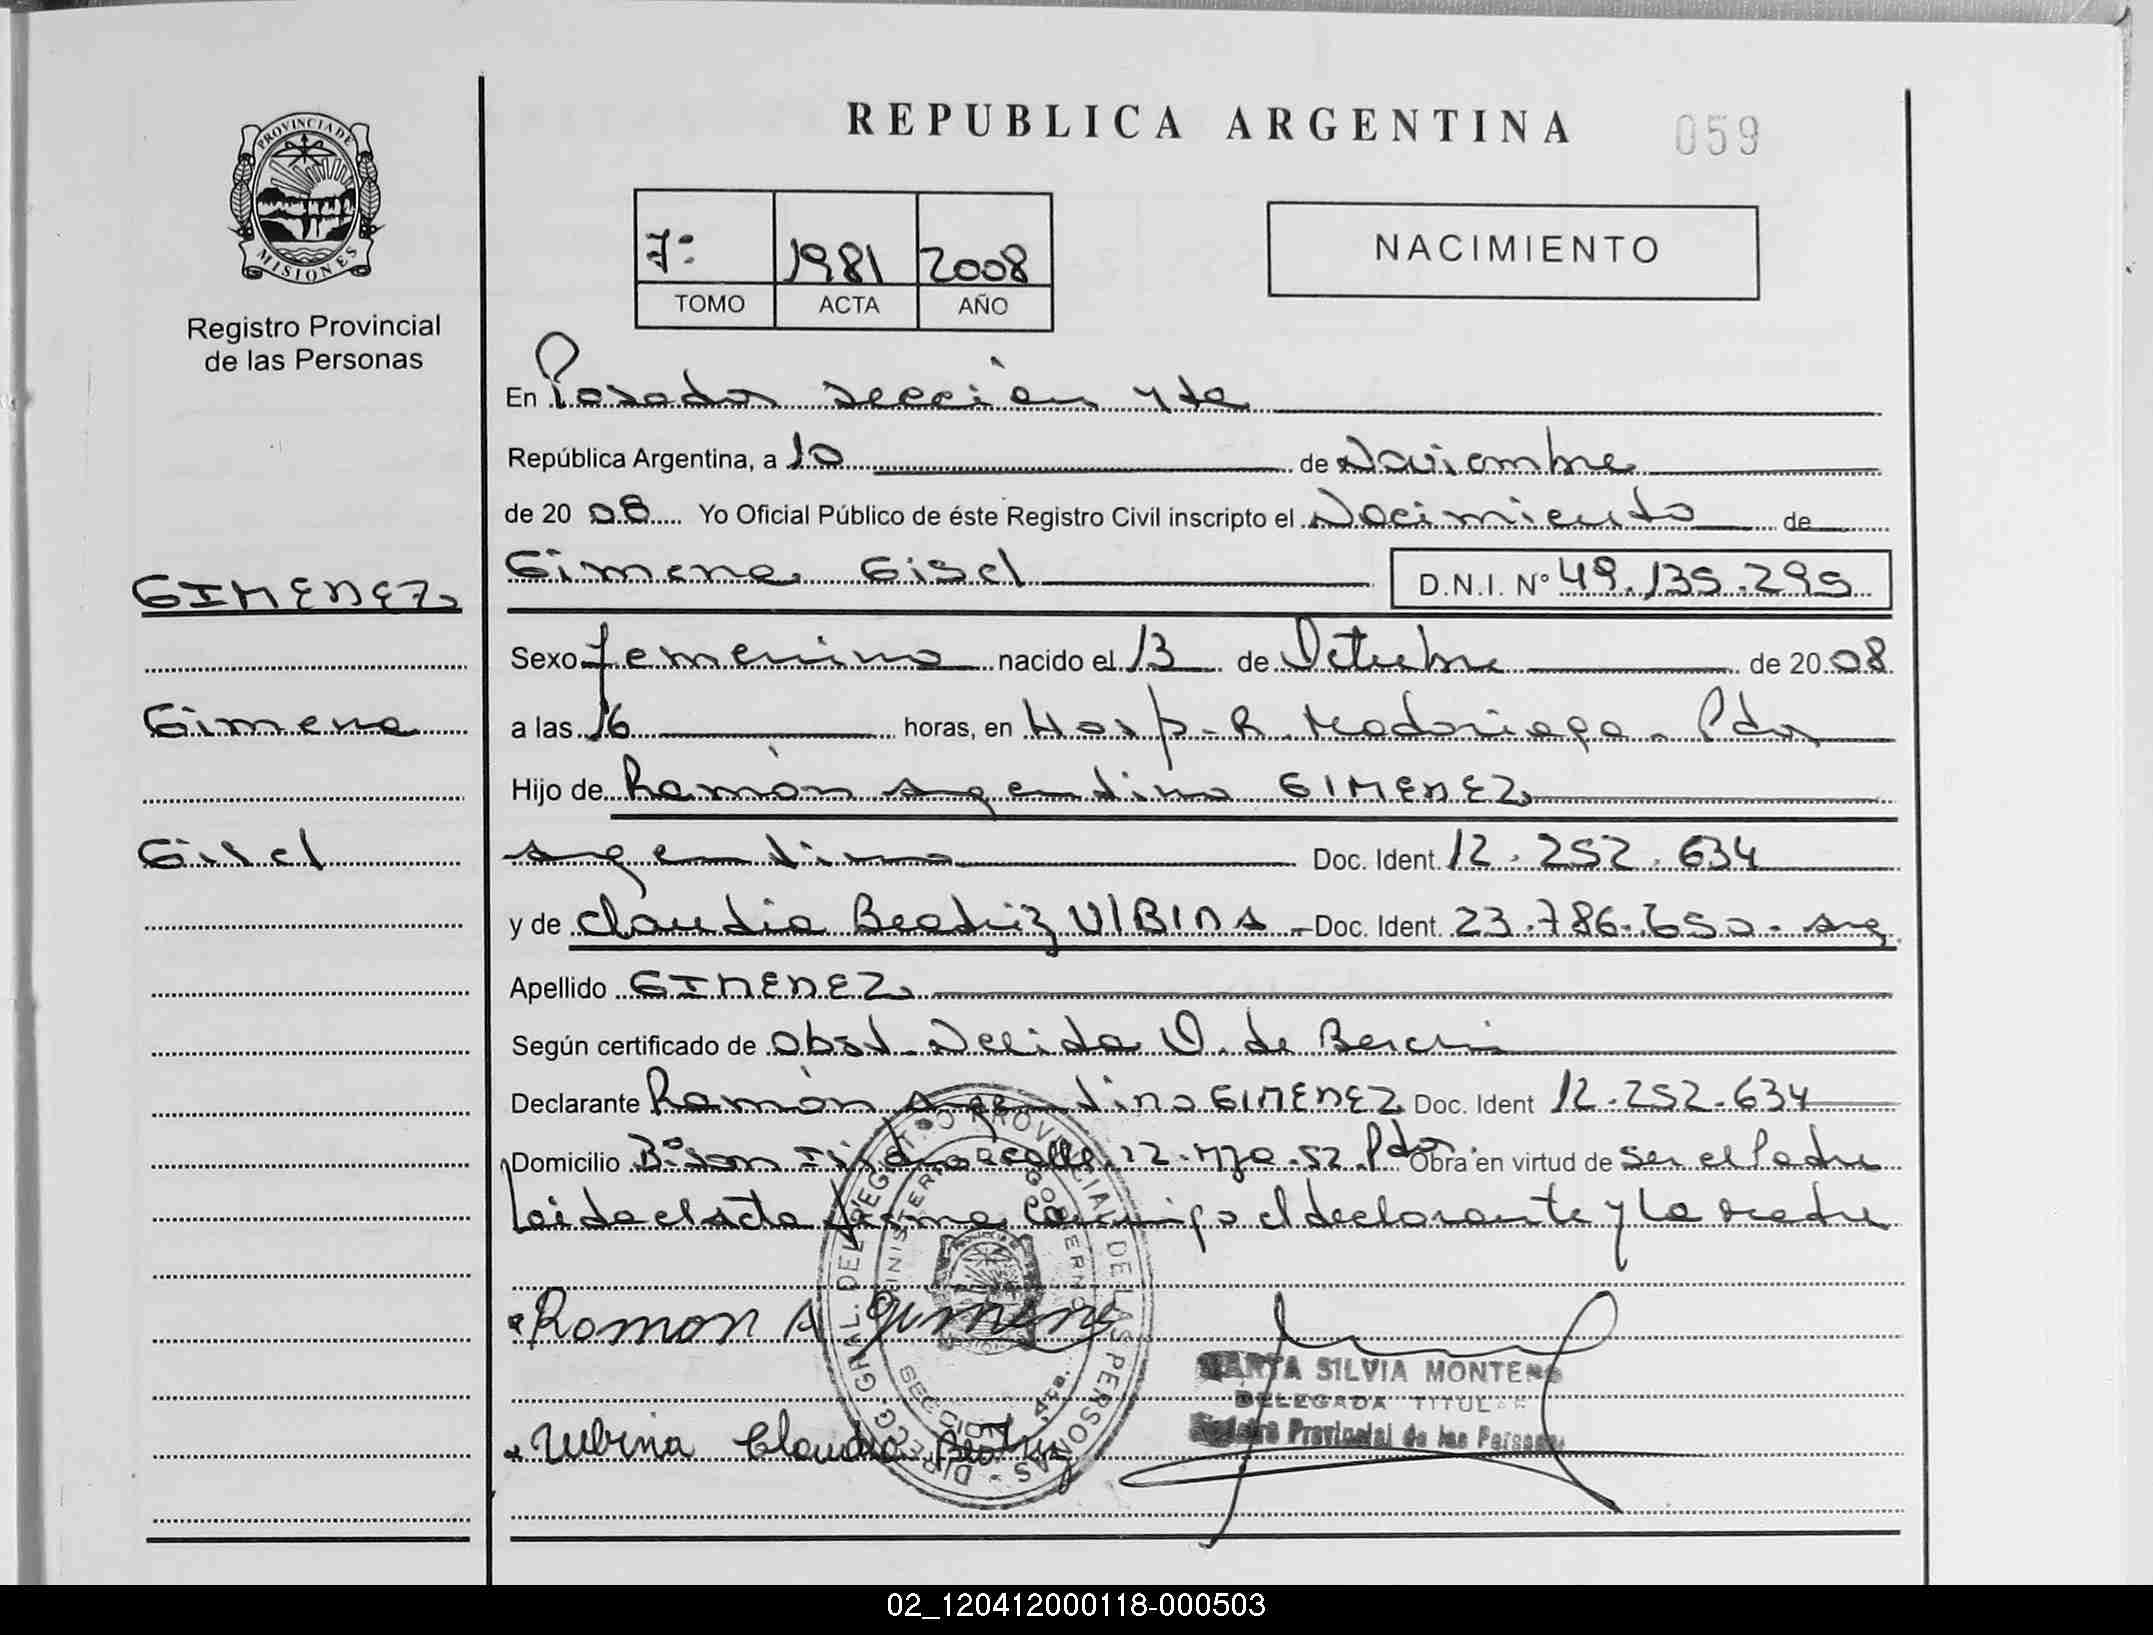 REPUBLICA ARGENTINA
059
PROVINCIA DE MISIONES
Registro Provincial
de las Personas
7º 1981 2008
TOMO ACTA AÑO
NACIMIENTO
En Posadas sección 4ta
República Argentina, a 10 de Noviembre
de 2008 Yo Oficial Público de éste Registro Civil inscripto el Nacimiento de
GIMENEZ
Gimena Gisel D.N.I. Nº 49.135.295
Sexo femenino nacido el 13 de Octubre de 2008
Gimena
a las 16 horas, en Hosp. R. Madariaga - Pdas
Hijo de Ramón Argentino GIMENEZ
Gisel
Argentino Doc. Ident. 12.252.634
y de Claudia Beatriz UIBINA - Doc. Ident. 23.786.650 - Arg
Apellido GIMENEZ
Según certificado de Obst. Nelida O. de
Declarante Ramón Argentino GIMENEZ Doc. Ident 12.252.634
Domicilio Bº San Isidro calle 122 Pdas Obra en virtud de ser el Padre
Leida el acta firma conmigo el declarante y la madre
DIRECC. GRAL. DEL REGISTRO PROVINCIAL DE LAS PERSONAS
MINISTERIO GOBIERNO
SECCION 4ta.
Ramon A Gimenez
MARTA SILVIA MONTERO
DELEGADA TITULAR
Registro Provincial de las Personas
Uibina Claudia Beatriz
02_120412000118-000503